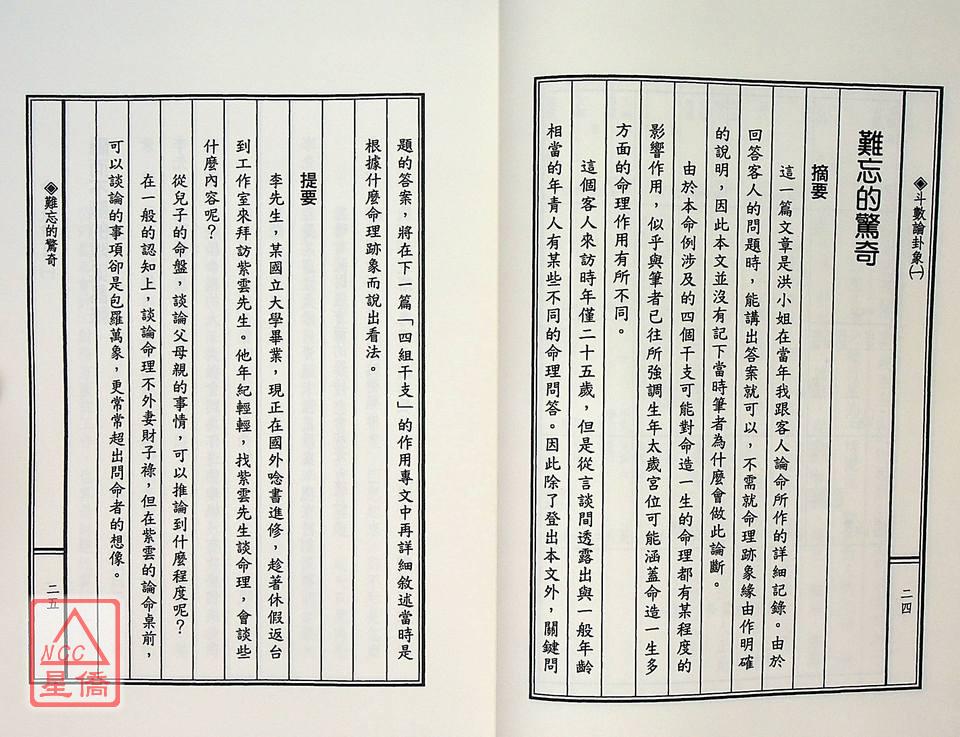 ◈斗數論卦象㈠
二四
難忘的驚奇
摘要
這一篇文章是洪小姐在當年我跟客人論命所作的詳細記錄。由於
回答客人的問題時，能講出答案就可以，不需就命理跡象緣由作明確
的說明，因此本文並沒有記下當時筆者為什麼會做此論斷。
由於本命例涉及的四個干支可能對命造一生的命理都有某程度的
影響作用，似乎與筆者已往所強調生年太歲宮位可能涵蓋命造一生多
方面的命理作用有所不同。
這個客人來訪時年僅二十五歲，但是從言談間透露出與一般年齡
相當的年青人有某些不同的命理問答。因此除了登出本文外，關鍵問
題的答案，將在下一篇「四組干支」的作用專文中再詳細敘述當時是
根據什麼命理跡象而說出看法。
提要
李先生，某國立大學畢業，現正在國外唸書進修，趁著休假返台
到工作室來拜訪紫雲先生。他年紀輕輕，找紫雲先生談命理，會談些
什麼內容呢？
從兒子的命盤，談論父母親的事情，可以推論到什麼程度呢？
在一般的認知上，談論命理不外妻財子祿，但在紫雲的論命桌前，
可以談論的事項卻是包羅萬象，更常常超出問命者的想像。
◈難忘的驚奇
二五
NCC
星僑